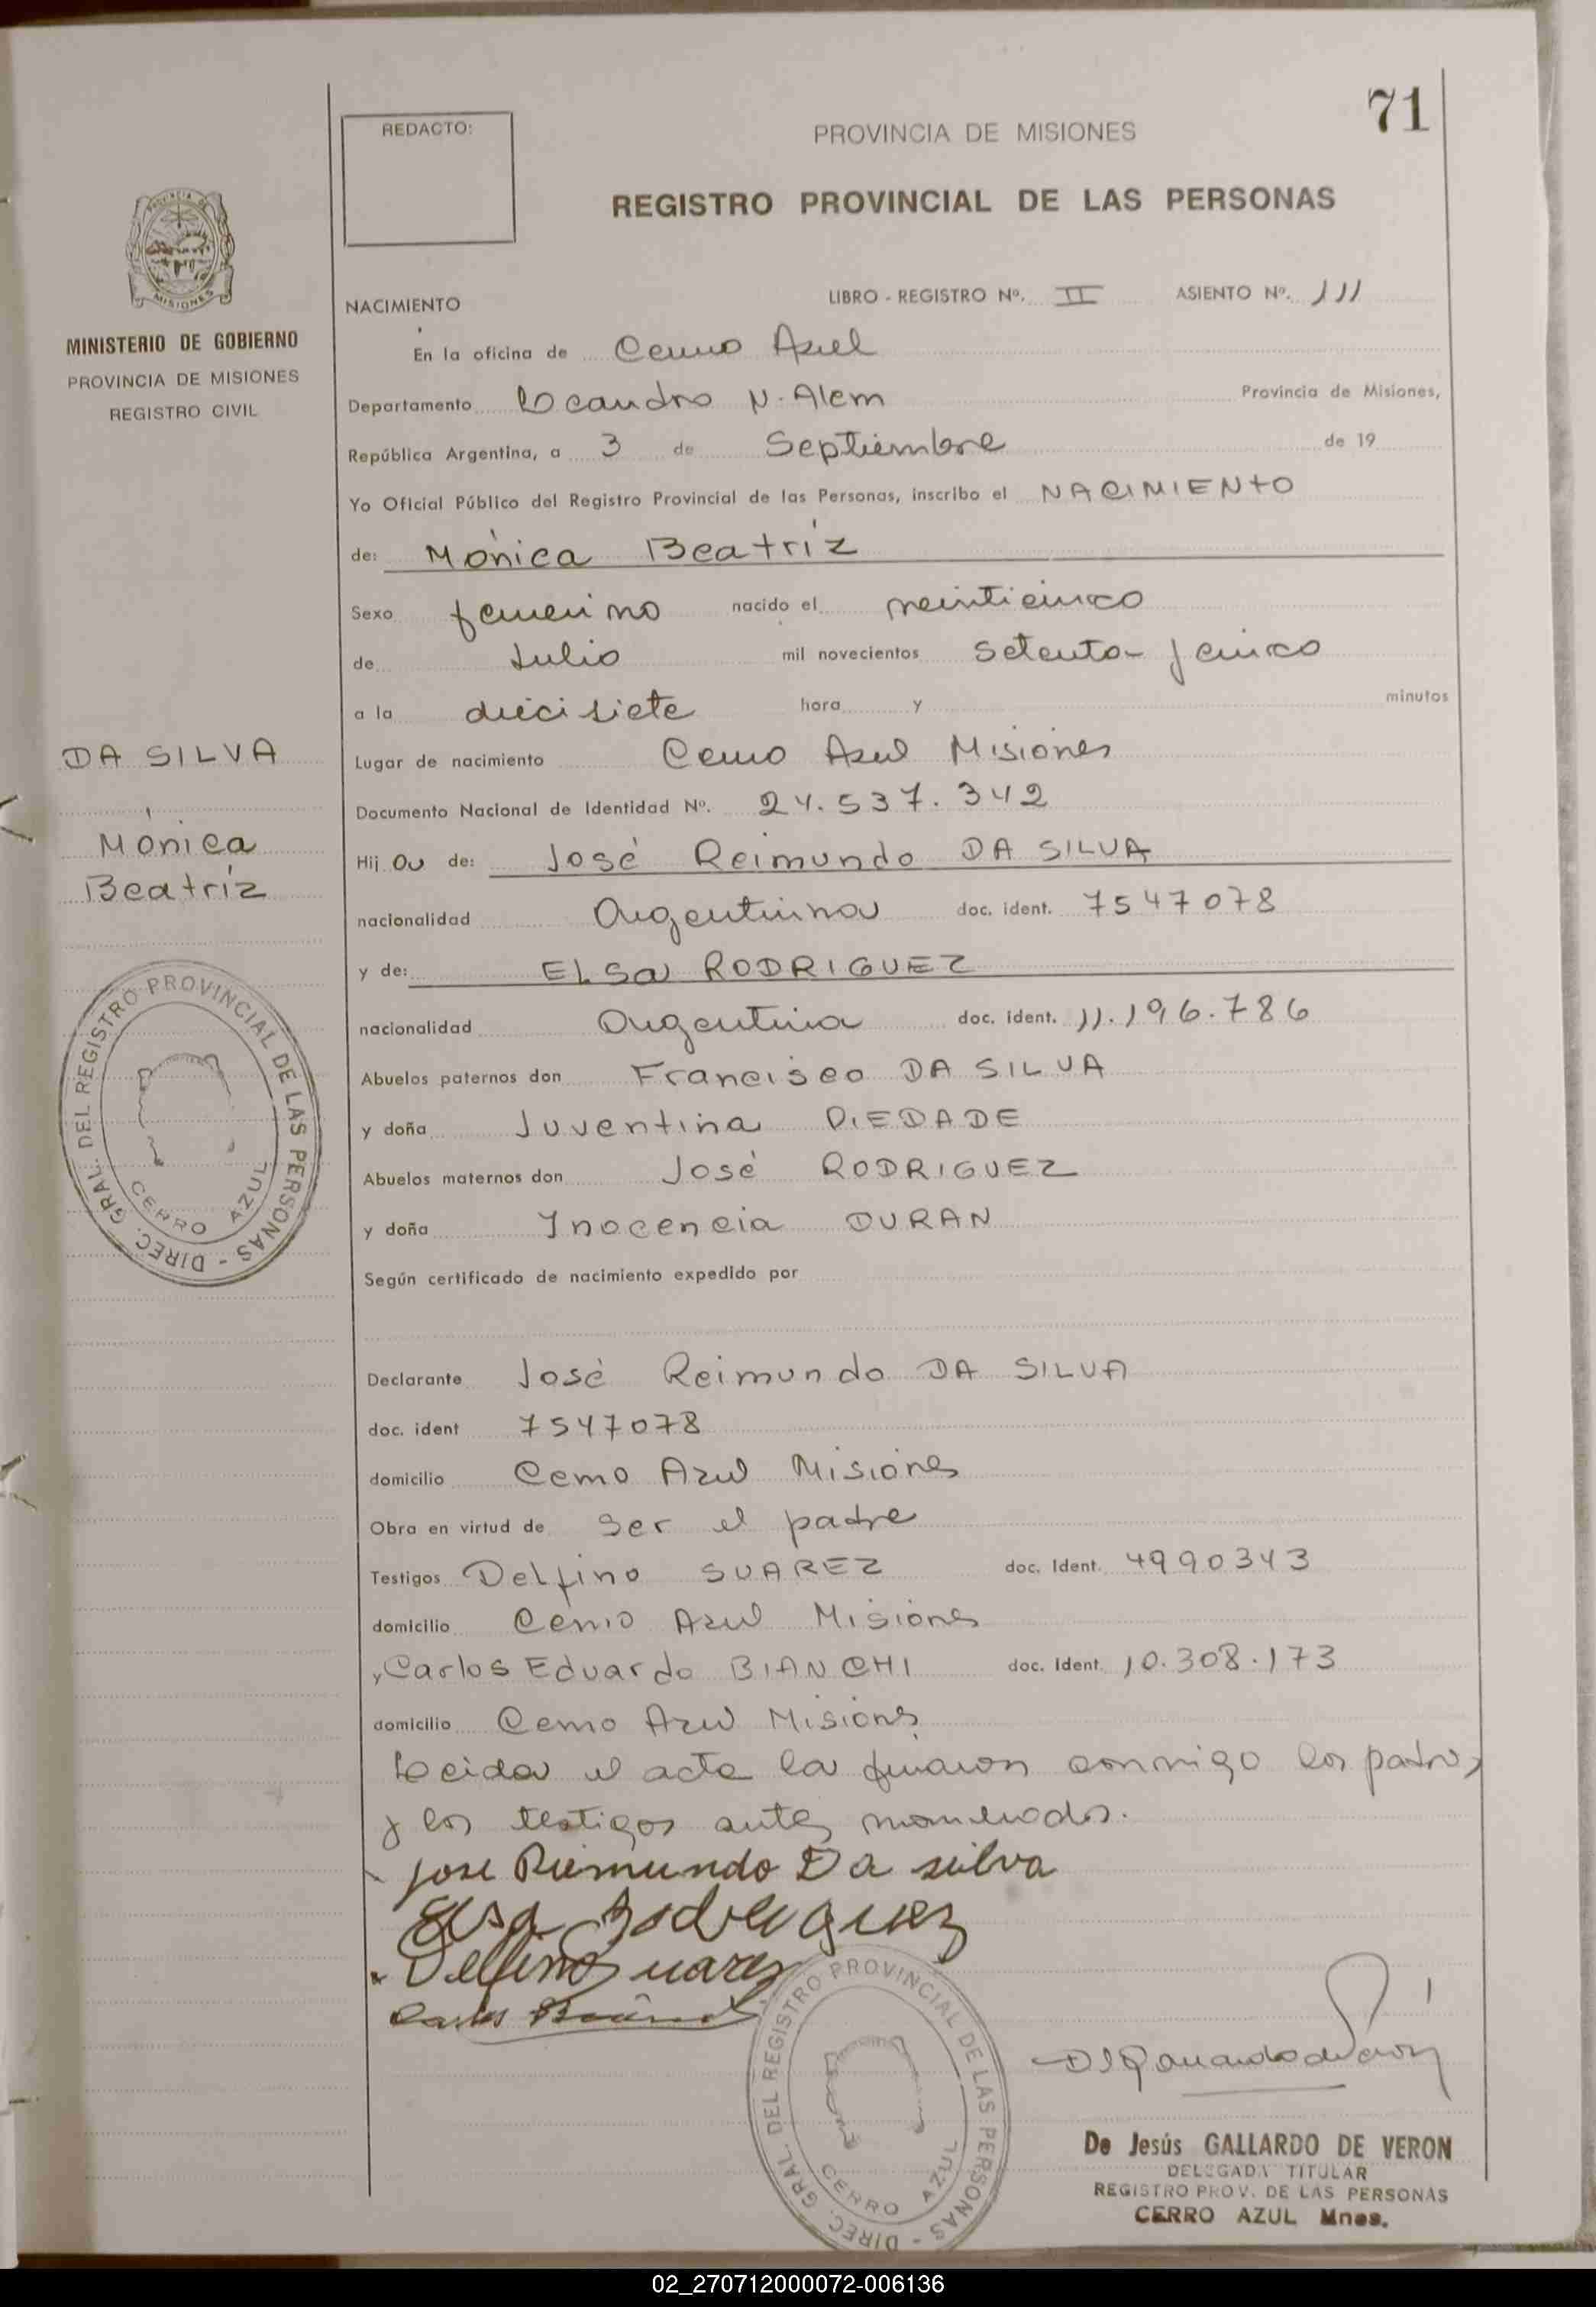 71
REDACTO:
PROVINCIA DE MISIONES
REGISTRO PROVINCIAL DE LAS PERSONAS
MISIONES
MINISTERIO DE GOBIERNO
PROVINCIA DE MISIONES
REGISTRO CIVIL
NACIMIENTO LIBRO - REGISTRO Nº. II ASIENTO Nº. 111
En la oficina de Cerro Azul
Departamento Leandro N. Alem Provincia de Misiones,
República Argentina, a 3 de Septiembre de 19
Yo Oficial Público del Registro Provincial de las Personas, inscribo el NACIMIENTO
de: Mónica Beatríz
Sexo femenino nacido el veinticinco
de Julio mil novecientos setenta y cinco
a la diecisiete hora y minutos
Lugar de nacimiento Cerro Azul Misiones
Documento Nacional de Identidad Nº. 24.537.342
Hij a de: José Reimundo DA SILVA
nacionalidad Argentina doc. ident. 7547078
y de: ELSa RODRIGUEZ
nacionalidad Argentina doc. ident. 11.196.786
Abuelos paternos don Francisco DA SILVA
y doña Juventina PIEDADE
Abuelos maternos don José RODRIGUEZ
y doña Inocencia DURAN
Según certificado de nacimiento expedido por
Declarante José Reimundo DA SILVA
doc. ident 7547078
domicilio Cerro Azul Misiones
Obra en virtud de ser el padre
Testigos Delfino SUAREZ doc. Ident. 4990343
domicilio Cerro Azul Misiones
y Carlos Eduardo BIANCHI doc. Ident. 10.308.173
domicilio Cerro Azul Misiones
Leida el acta la firmaron conmigo los padres
y los testigos antes nombrados.
Jose Riemundo Da silva
Elsa Rodriguez
Delfino Suarez
Carlos
DA SILVA
Mónica
Beatríz
DIREC. GRAL. DEL REGISTRO PROVINCIAL DE LAS PERSONAS -
CERRO AZUL
DIREC. GRAL. DEL REGISTRO PROVINCIAL DE LAS PERSONAS -
CERRO AZUL
De Jesús GALLARDO DE VERON
DELEGADA TITULAR
REGISTRO PROV. DE LAS PERSONAS
CERRO AZUL Mnes.
02_270712000072-006136